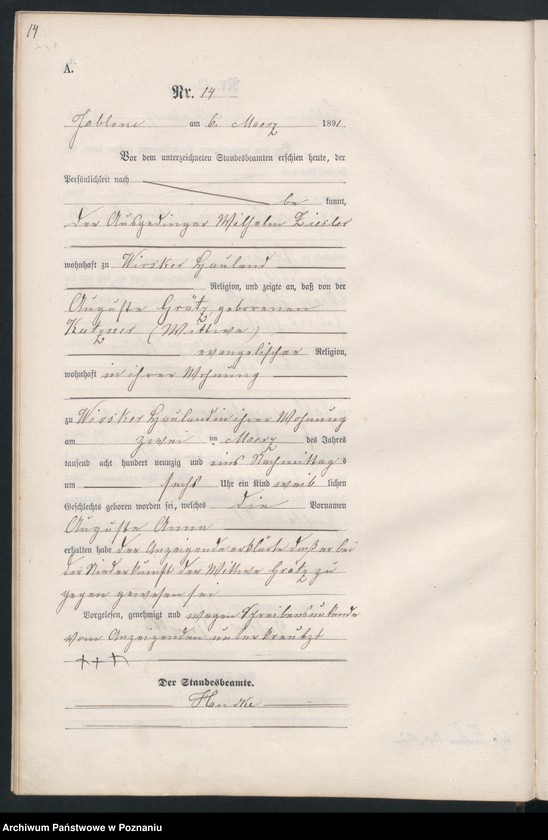 14
A.
Nr. 14
Jablone am 6. Maerz 1891
Vor dem unterzeichneten Standesbeamten erschien heute, der
Persönlichkeit nach
be kannt,
der Ausgedinger Wilhelm Ziesler
wohnhaft zu Wiosker Hauland
Religion, und zeigte an, daß von der
Auguste Grätz geborenen
Kutzner (Wittwe)
evangelischer Religion,
wohnhaft in ihrer Wohnung
zu Wiosker Hauland in ihrer Wohnung
am zwei ten Maerz des Jahres
tausend acht hundert neunzig und eins Nachmittag s
um sechs Uhr ein Kind weib lichen
Geschlechts geboren worden sei, welches die Vornamen
Auguste Anna
erhalten habe der Anzeigende erklärte daß er bei
der Niederkunft der Wittwe Grätz zu
gegen gewesen sei
Vorgelesen, genehmigt und wegen Schreibensunkunde
vom Anzeigenden unterkreutzt
+++
Der Standesbeamte.
Handke
Archiwum Państwowe w Poznaniu